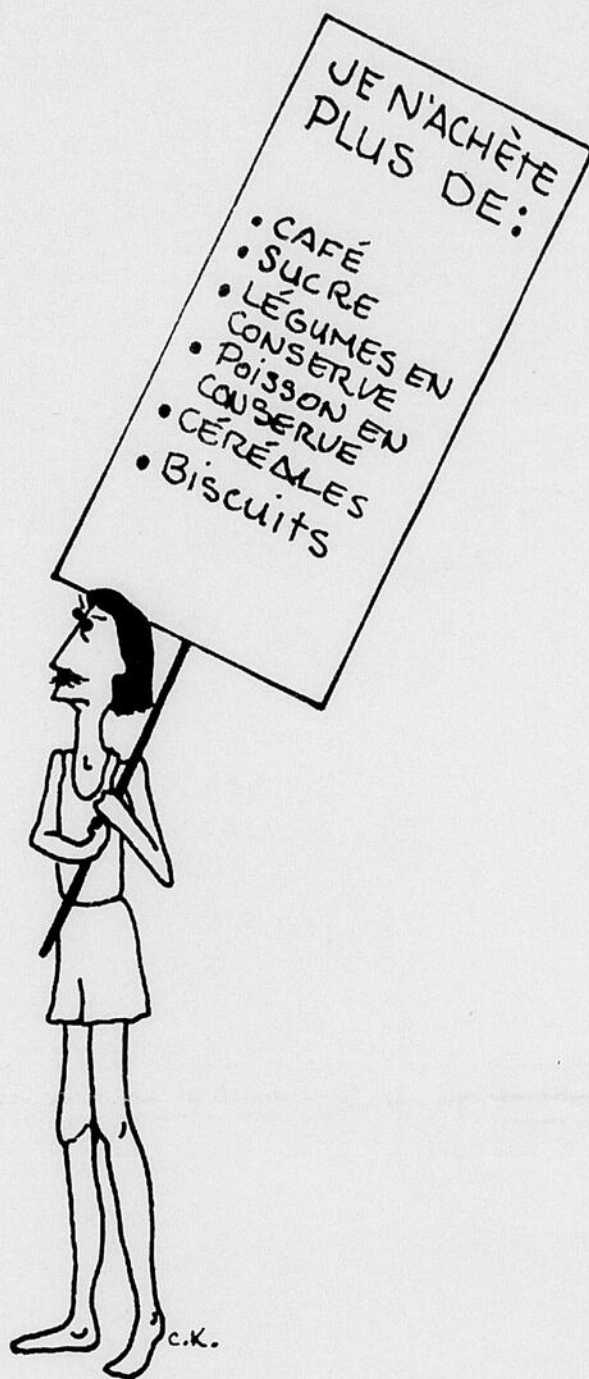 JE N'ACHÈTE
PLUS DE:
• CAFÉ
• SUCRE
• LÉGUMES EN
CONSERVE
• POISSON EN
CONSERVE
• CÉRÉALES
• BISCUITS
C.K.